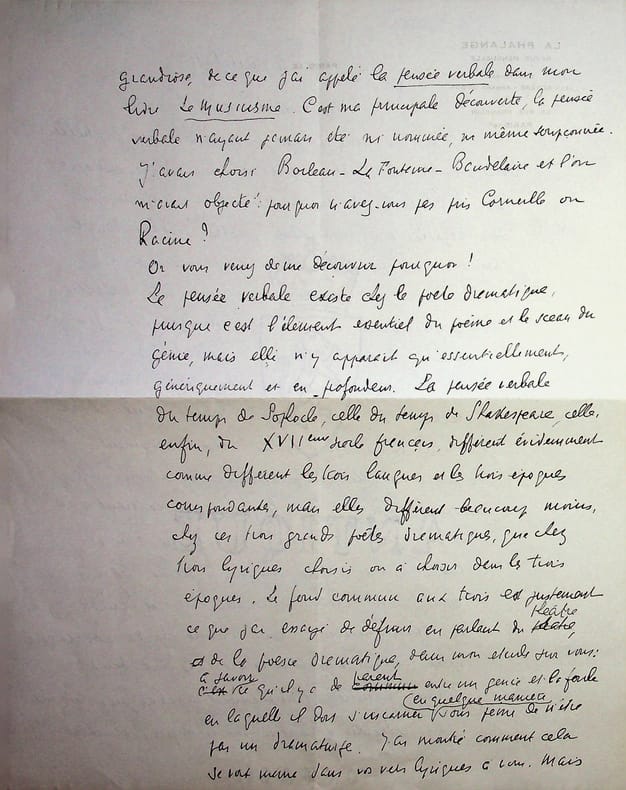 LA PHALANGE
grandiose, de ce que j'ai appelé la pensée verbale dans mon
livre Le Musicisme. C'est ma principale découverte, la pensée
verbale n'ayant jamais été ni nommée, ni même soupçonnée.
J'avais choisi Boileau - La Fontaine - Baudelaire et l'on
m'avait objecté : pourquoi n'avez-vous pas pris Corneille ou
Racine ?
Or vous venez de me découvrir pourquoi !
La pensée verbale existe chez le poète dramatique,
puisque c'est l'élément essentiel du poème et le sceau du
génie, mais elle n'y apparait qu'essentiellement,
génériquement et en profondeur. La pensée verbale
du temps de Sophocle, celle du temps de Shakespeare, celle,
enfin, du XVIIème siècle français, diffèrent évidemment
comme diffèrent les trois langues et les trois époques
correspondantes, mais elles diffèrent beaucoup moins,
chez ces trois grands poètes dramatiques, que chez
trois lyriques choisis ou à choisir dans les trois
époques. Le fond commun aux trois est justement
ce que j'ai essayé de définir en parlant du théâtre,
et de la poésie dramatique, dans mon étude sur vous :
à savoir ce qu'il y a de parent entre un génie et la foule
en laquelle il doit s'incarner en quelque manière sous peine de n'être
pas un dramaturge. J'ai montré comment cela
se voit même dans vos vers lyriques à vous. Mais